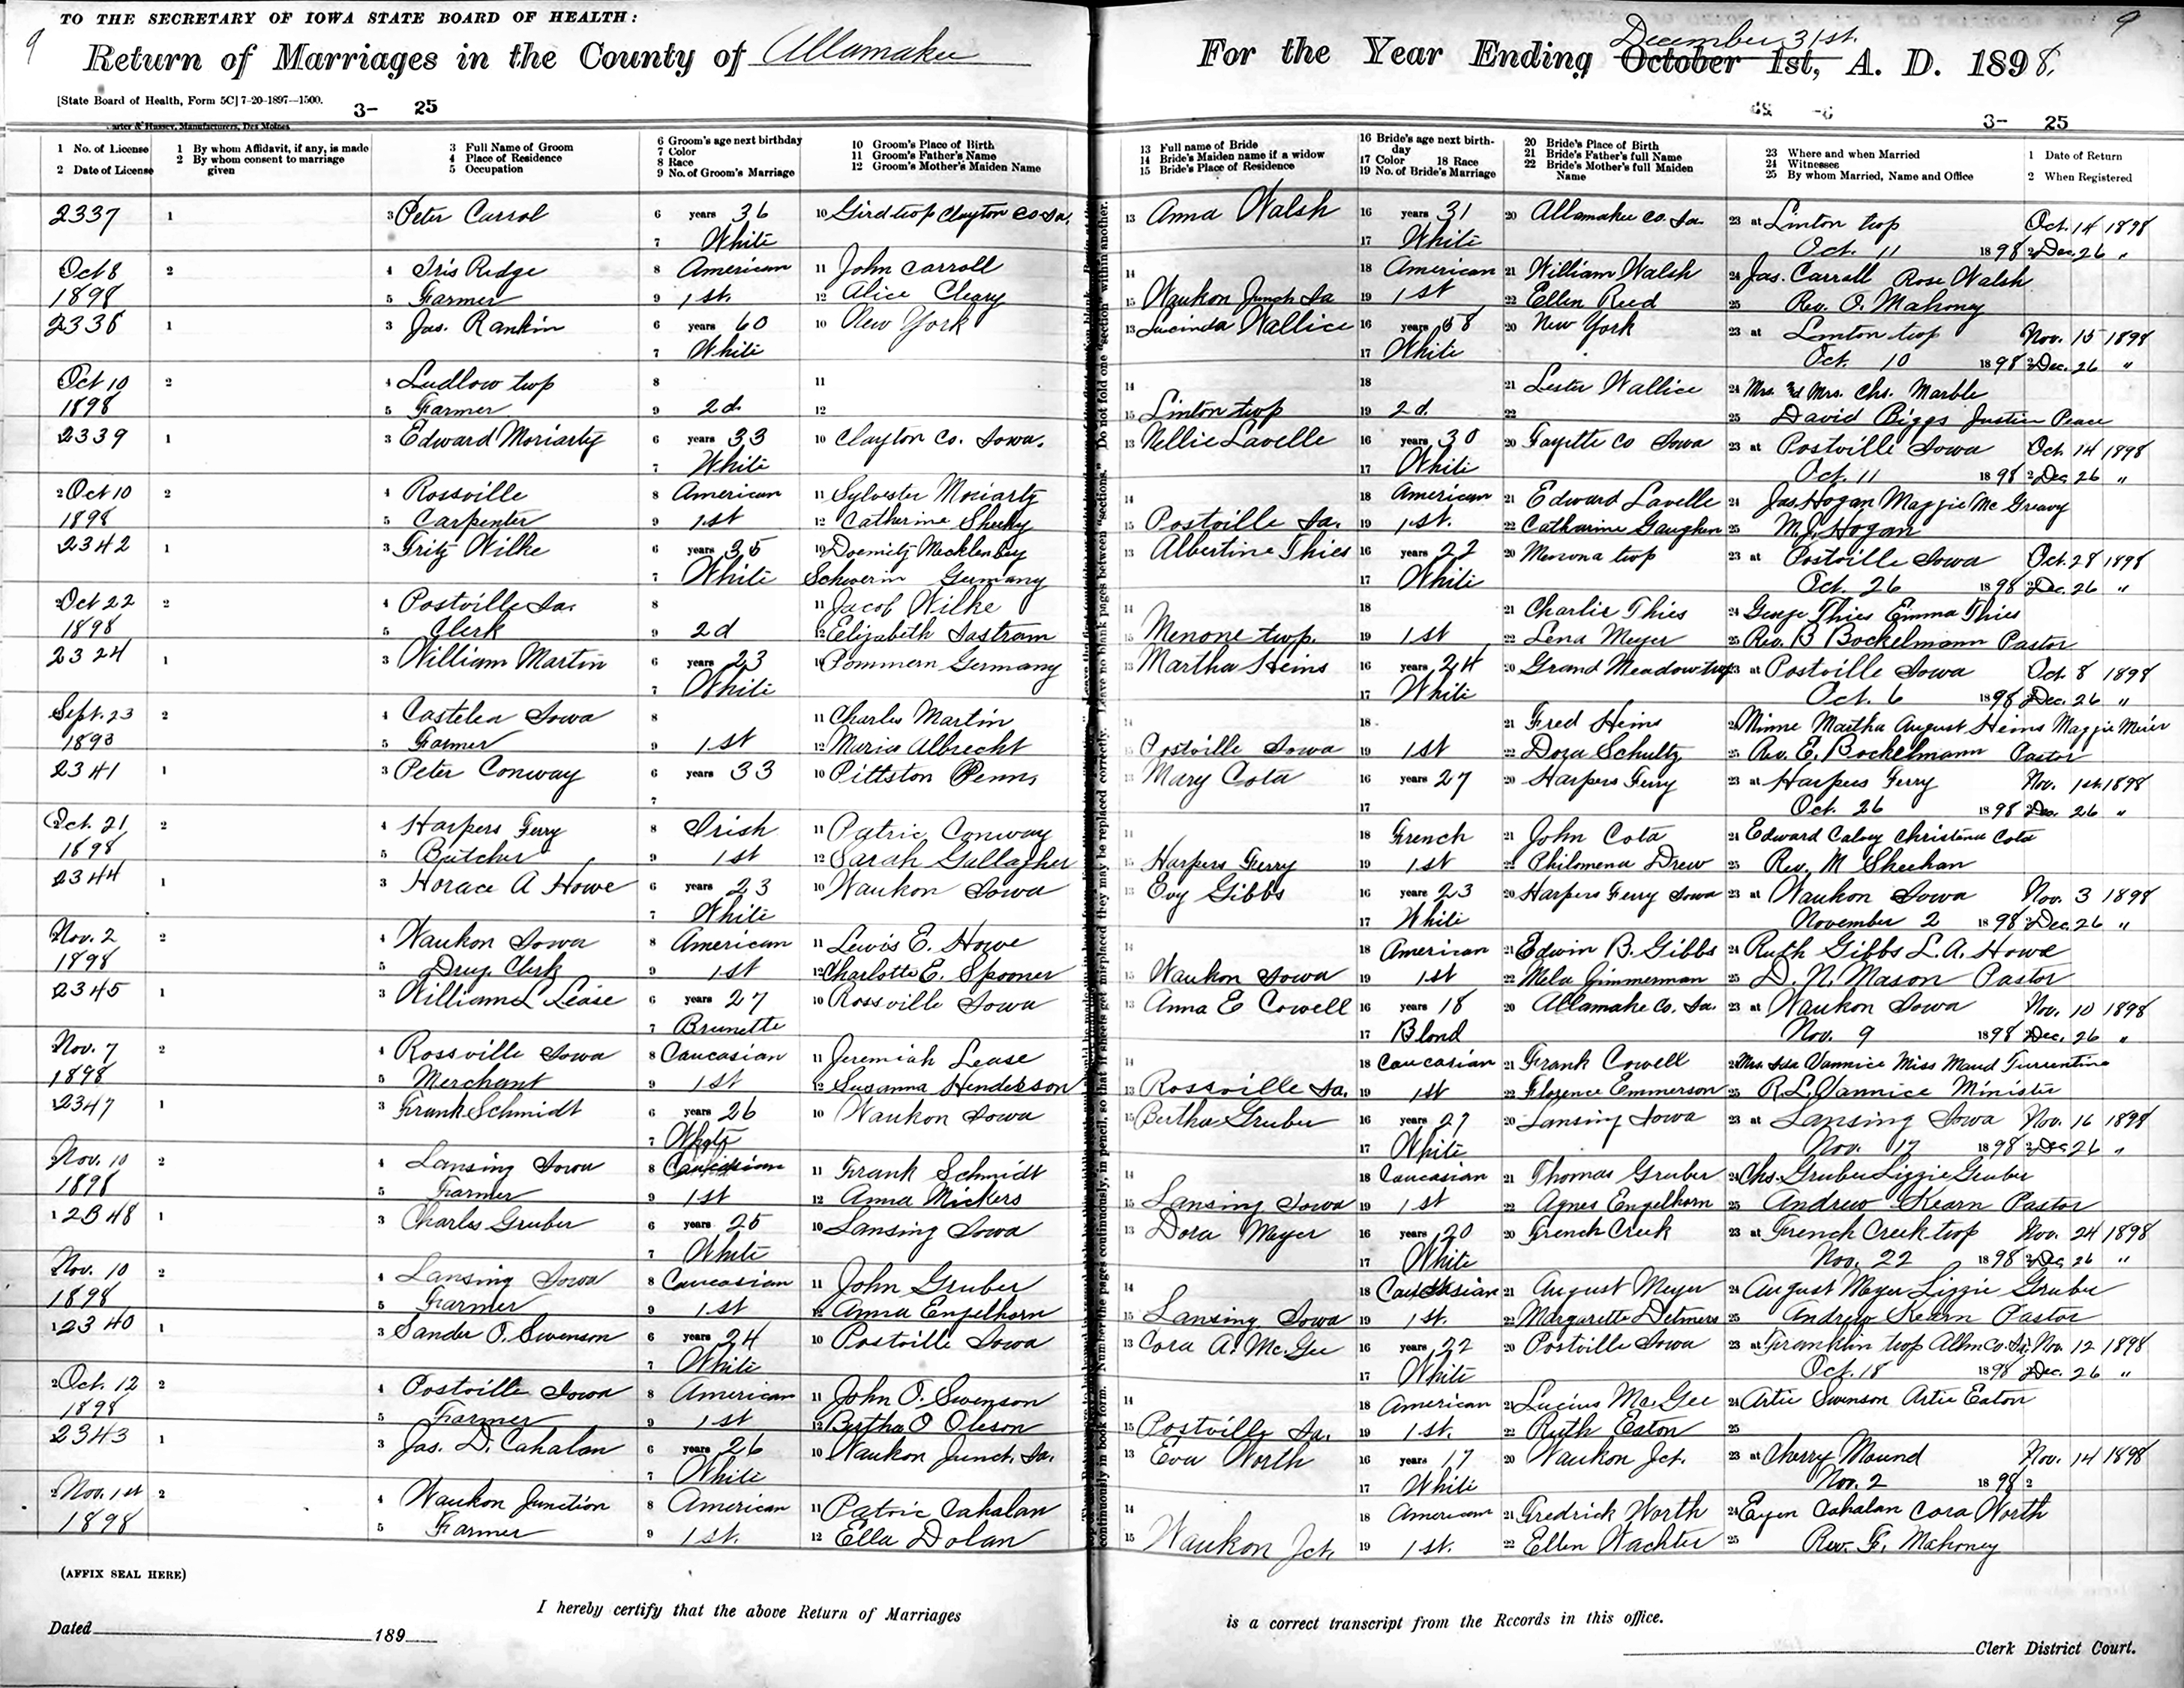 TO THE SECRETARY OF IOWA STATE BOARD OF HEALTH:
9 Return of Marriages in the County of Allamakee
[State Board of Health, Form 5C] 7-20-1897—1500.
3- 25
arter & Hussey, Manufacturers, Des Moines
For the Year Ending December 31st. October 1st, A. D. 1898. 9
3- 25
1 No. of License
2 Date of License
1 By whom Affidavit, if any, is made
2 By whom consent to marriage given
3 Full Name of Groom
4 Place of Residence
5 Occupation
6 Groom's age next birthday
7 Color
8 Race
9 No. of Groom's Marriage
10 Groom's Place of Birth
11 Groom's Father's Name
12 Groom's Mother's Maiden Name
13 Full name of Bride
14 Bride's Maiden name if a widow
15 Bride's Place of Residence
16 Bride's age next birthday
17 Color 18 Race
19 No. of Bride's Marriage
20 Bride's Place of Birth
21 Bride's Father's full Name
22 Bride's Mother's full Maiden Name
23 Where and when Married
24 Witnesses
25 By whom Married, Name and Office
1 Date of Return
2 When Registered
2337 1 3 Peter Carrol 6 years 36 10 Gird twp Clayton Co Ia. 13 Anna Walsh 16 years 31 20 Allamakee Co. Ia. 23 at Linton twp Oct. 14 1898
7 White 17 White Oct. 11 1898 2 Dec. 26 "
Oct 8 2 4 Iris Ridge 8 American 11 John Carroll 14 18 American 21 William Walsh 24 Jas. Carroll Rose Walsh
1898 5 Farmer 9 1st. 12 Alice Cleary 15 Waukon Junch Ia 19 1st 22 Ellen Reed 25 Rev. O. Mahoney
2338 1 3 Jas. Rankin 6 years 60 10 New York 13 Lucinda Wallice 16 years 58 20 New York 23 at Linton twp Nov. 15 1898
7 White 17 White Oct. 10 1898 2 Dec. 26 "
Oct 10 2 4 Ludlow twp 8 11 14 18 21 Lester Wallice 24 Mrs. & Mrs. Chs. Marble
1898 5 Farmer 9 2d. 12 15 Linton twp 19 2d. 22 25 David Biggs Justice Peace
2339 1 3 Edward Moriarty 6 years 33 10 Clayton Co. Iowa. 13 Nellie Lavelle 16 years 30 20 Fayette Co Iowa 23 at Postville Iowa Oct. 14 1898
7 White 17 White Oct. 11 1898 2 Dec 26 "
2 Oct 10 2 4 Rossville 8 American 11 Sylvester Moriarty 14 18 American 21 Edward Lavelle 24 Jas. Hogan Maggie Mc Greavy
1898 5 Carpenter 9 1st 12 Catherine Sheehy 15 Postville Ia. 19 1st. 22 Catharine Gaughen 25 M. J. Hogan
2342 1 3 Fritz Wilke 6 years 35 10 Doemitz Mecklenbey 13 Albertine Thies 16 years 22 20 Menona twp 23 at Postville Iowa Oct. 28 1898
7 White Schwerin Germany 17 White Oct. 26 1898 2 Dec. 26 "
2 Oct 22 2 4 Postville Ia. 8 11 Jacob Wilke 14 18 21 Charlie Thies 24 George Thies Emma Thies
1898 5 Clerk 9 2d 12 Elizabeth Jastram 15 Menone twp. 19 1st 22 Lena Meyer 25 Rev. B Bockelmann Pastor
2324 1 3 William Martin 6 years 23 10 Pommern Germany 13 Martha Heins 16 years 24 20 Grand Meadow twp 23 at Postville Iowa Oct. 8 1898
7 White 17 White Oct. 6 1898 2 Dec. 26 "
Sept. 23 2 4 Castelea Iowa 8 11 Charles Martin 14 18 21 Fred Heins 24 Minne Martha August Heins Maggie Meier
1893 5 Farmer 9 1st 12 Maria Albrecht 15 Postville Iowa 19 1st 22 Dora Schultz 25 Rev. E. Bockelmann Pastor
2341 1 3 Peter Conway 6 years 33 10 Pittston Penn. 13 Mary Cota 16 years 27 20 Harpers Ferry 23 at Harpers Ferry Nov. 1st 1898
7 17 Oct. 26 1898 2 Dec. 26 "
Oct. 21 2 4 Harpers Ferry 8 Irish 11 Patric Conway 14 18 French 21 John Cota 24 Edward Calvey Christena Cota
1898 5 Butcher 9 1st 12 Sarah Gallagher 15 Harpers Ferry 19 1st 22 Philomena Drew 25 Rev. M Sheehan
2344 1 3 Horace A Howe 6 years 23 10 Waukon Iowa 13 Evy Gibbs 16 years 23 20 Harpers Ferry Iowa 23 at Waukon Iowa Nov. 3 1898
7 White 17 White November 2 1898 2 Dec. 26 "
Nov. 2 2 4 Waukon Iowa 8 American 11 Lewis E. Howe 14 18 American 21 Edwin B. Gibbs 24 Ruth Gibbs L. A. Howe
1898 5 Drug Clerk 9 1st 12 Charlotte E. Spooner 15 Waukon Iowa 19 1st 22 Mela Zimmerman 25 D. N. Mason Pastor
2345 1 3 William L Lease 6 years 27 10 Rossville Iowa 13 Anna E Cowell 16 years 18 20 Allamake Co. Ia. 23 at Waukon Iowa Nov. 10 1898
7 Brunette 17 Blond Nov. 9 1898 2 Dec. 26 "
Nov. 7 2 4 Rossville Iowa 8 Caucasian 11 Jeremiah Lease 14 18 Caucasian 21 Frank Cowell 24 Mrs. Ida Vannice Miss Maud Turrentine
1898 5 Merchant 9 1st 12 Susanna Henderson 13 Rossville Ia. 19 1st 22 Florence Emmerson 25 R. L. Vannice Minister
2347 1 3 Frank Schmidt 6 years 26 10 Waukon Iowa 15 Bertha Gruber 16 years 27 20 Lansing Iowa 23 at Lansing Iowa Nov. 16 1898
7 White 17 White Nov. 17 1898 2 Dec 26 "
Nov. 10 2 4 Lansing Iowa 8 Caucasian 11 Frank Schmidt 14 18 Caucasian 21 Thomas Gruber 24 Chs. Gruber Lizzie Gruber
1898 5 Farmer 9 1st 12 Anna Mickers 15 Lansing Iowa 19 1st 22 Agnes Engelhorn 25 Andrew Kearn Pastor
12348 1 3 Charles Gruber 6 years 25 10 Lansing Iowa 13 Dora Meyer 16 years 20 20 French Creek 23 at French Creek twp Nov. 24 1898
7 White 17 White Nov. 22 1898 2 Dec 26 "
Nov. 10 2 4 Lansing Iowa 8 Caucasian 11 John Gruber 14 18 Caucasian 21 August Meyer 24 August Meyer Lizzie Gruber
1898 5 Farmer 9 1st 12 Anna Engelhorn 15 Lansing Iowa 19 1st. 22 Margarette Detmers 25 Andrew Kearn Pastor
12340 1 3 Sander O. Swenson 6 years 24 10 Postville Iowa 13 Cora A. Mc. Gee 16 years 22 20 Postville Iowa 23 at Franklin twp Allm Co. Ia. Nov. 12 1898
7 White 17 White Oct. 18 1898 2 Dec. 26 "
2 Oct. 12 2 4 Postville Iowa 8 American 11 John O. Swenson 14 18 American 21 Lucius Mc. Gee 24 Artie Swenson Artie Eaton
1898 5 Farmer 9 1st 12 Bertha O Oleson 15 Postville Ia. 19 1st. 22 Ruth Eaton 25
2343 1 3 Jas. D. Cahalan 6 years 26 10 Waukon Junct. Ia. 13 Eva Worth 16 years 17 20 Waukon Jct. 23 at Cherry Mound Nov. 14 1898
7 White 17 White Nov. 2 1898 2
2 Nov. 1st 2 4 Waukon Junction 8 American 11 Patric Cahalan 14 18 American 21 Fredrick Worth 24 Cahalan Cora Worth
1898 5 Farmer 9 1st. 12 Ella Dolan 15 Waukon Jct. 19 1st. 22 Ellen Wachter 25 Rev. F. Mahoney
(AFFIX SEAL HERE)
I hereby certify that the above Return of Marriages is a correct transcript from the Records in this office.
Dated 189
Clerk District Court.